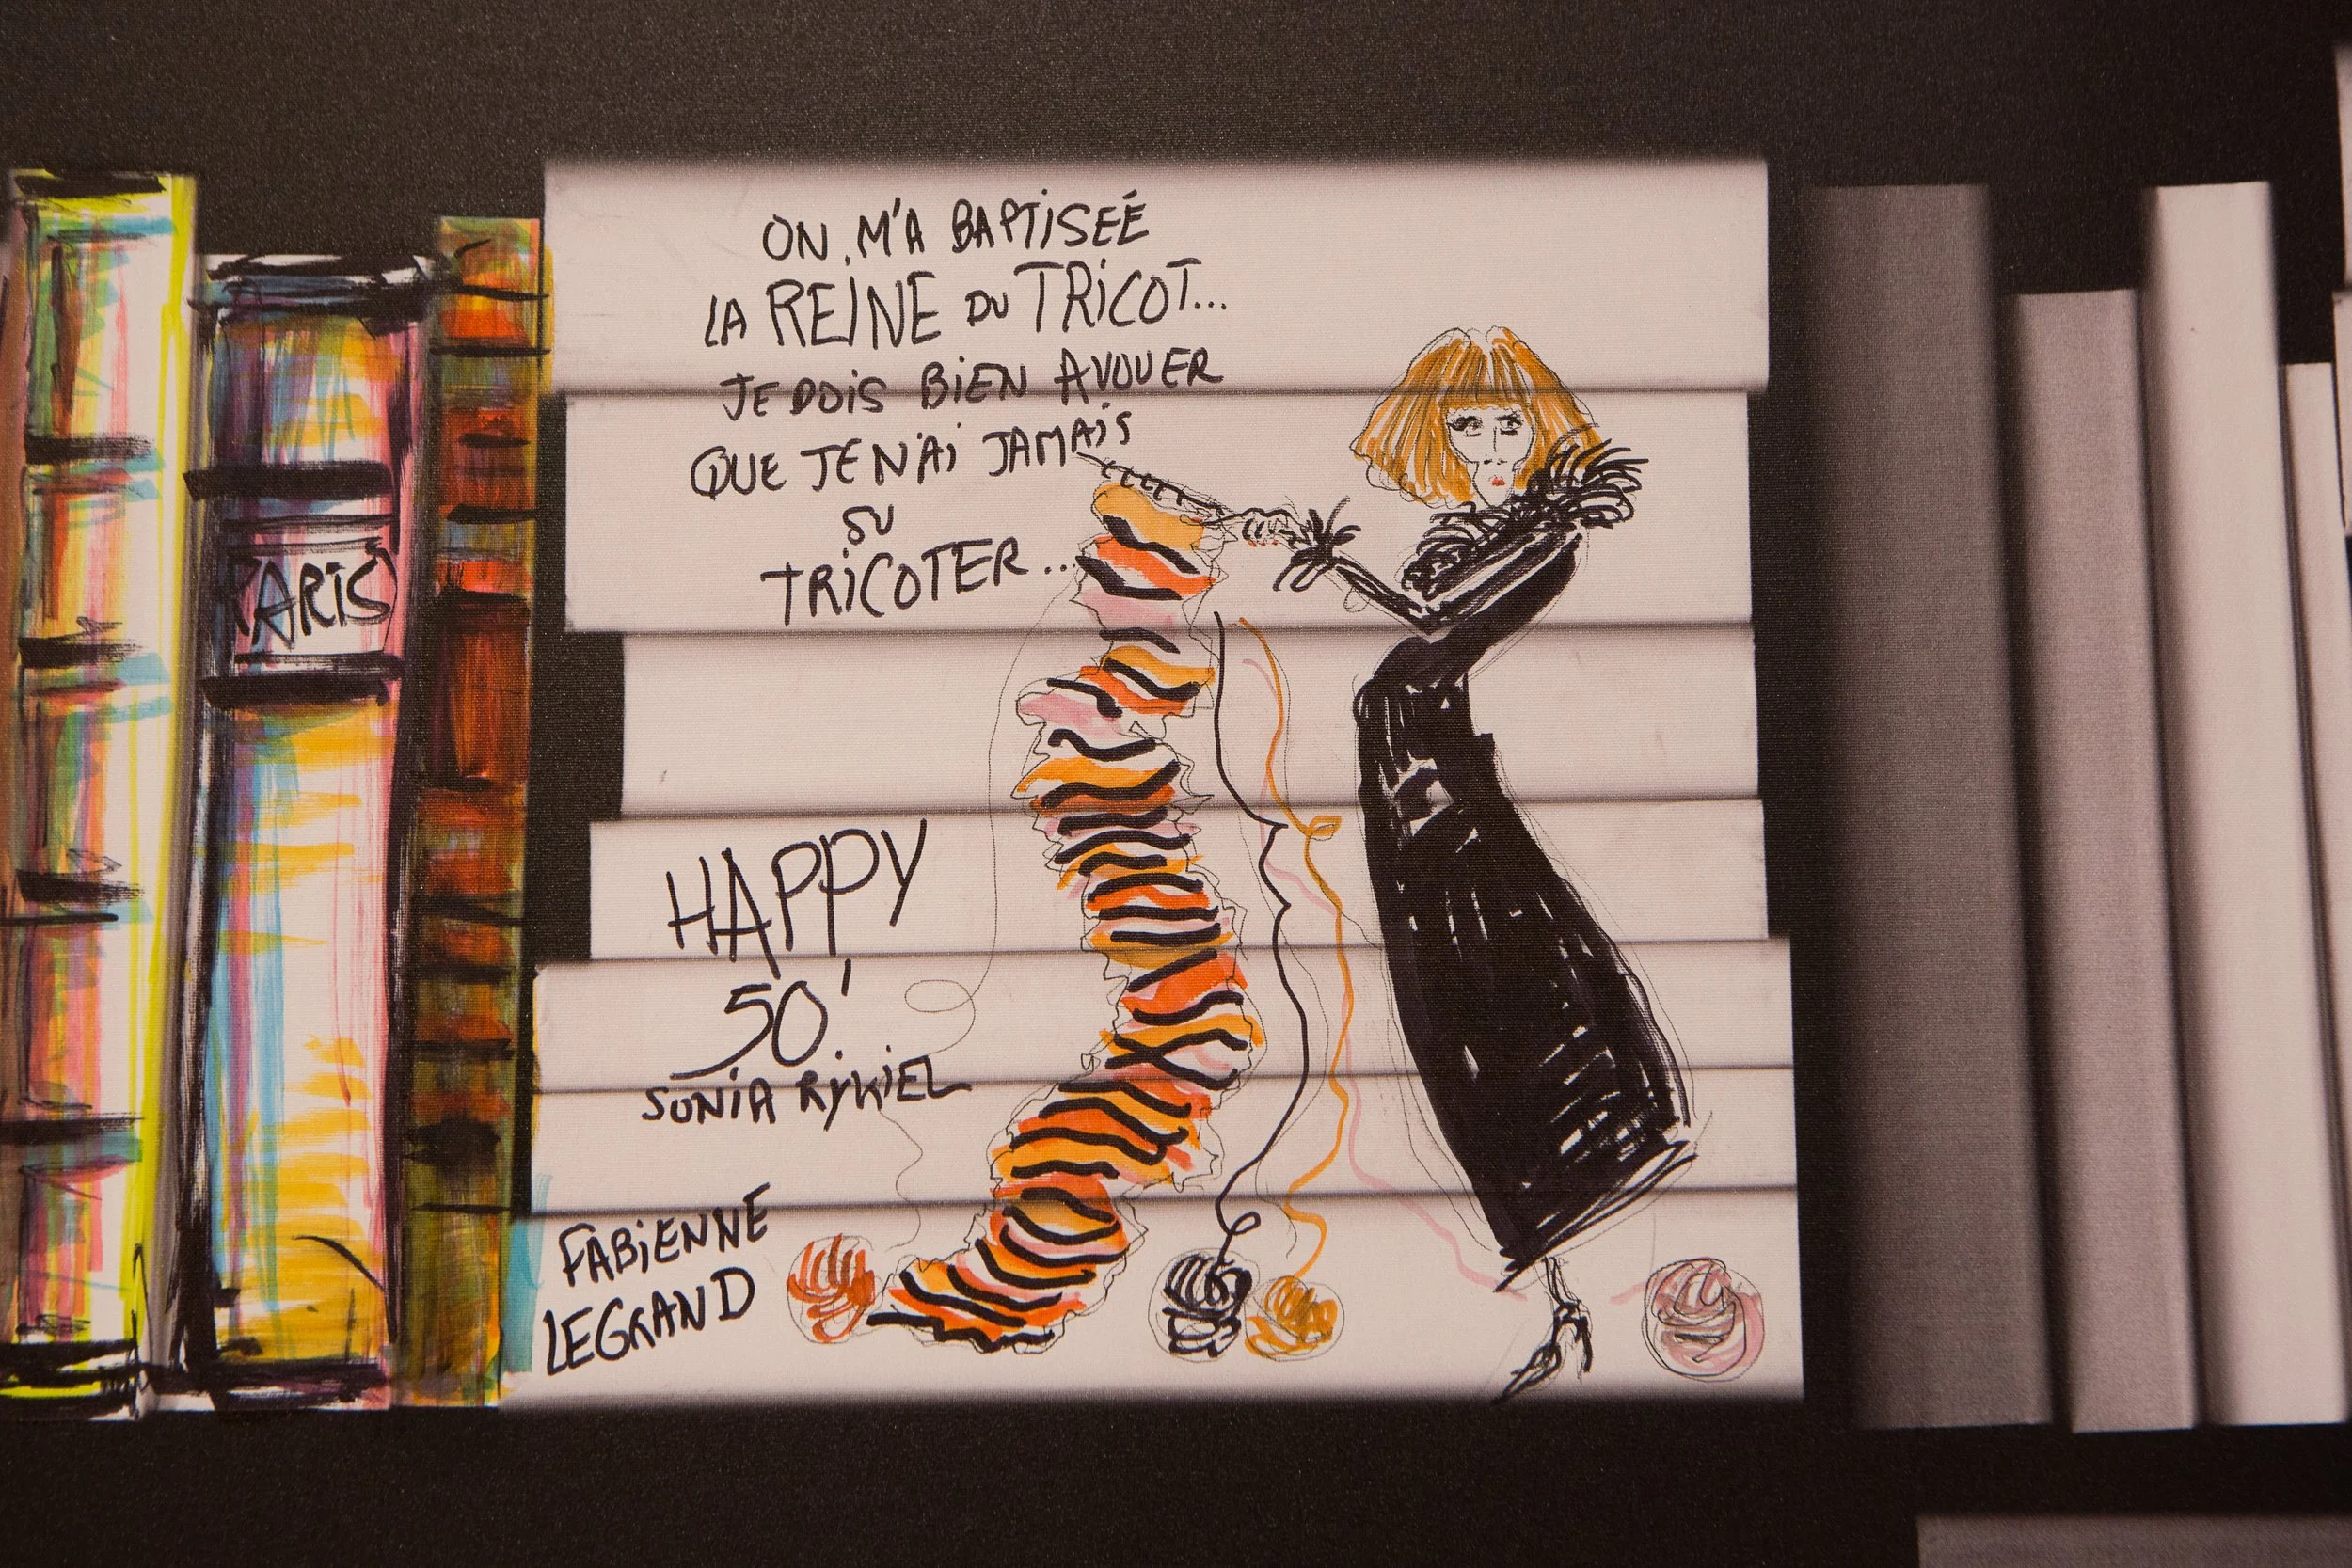 PARIS
ON M'A BAPTISÉE
LA REINE DU TRICOT...
JE DOIS BIEN AVOUER
QUE JE N'AI JAMAIS
SU
TRICOTER...
HAPPY
50!
SONIA RYKIEL
FABIENNE
LEGRAND